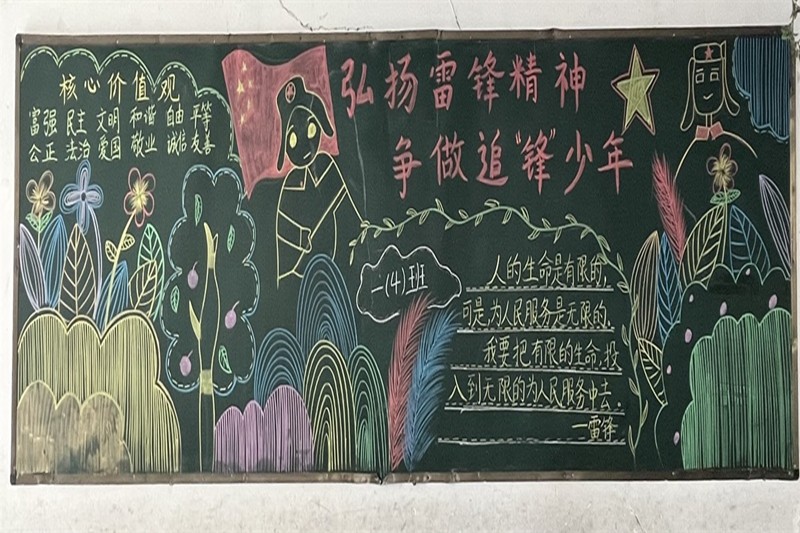 核心价值观
富强 民主 文明 和谐 自由 平等
公正 法治 爱国 敬业 诚信 友善
弘扬雷锋精神
争做追“锋”少年
一(4)班
人的生命是有限的,
可是为人民服务是无限的,
我要把有限的生命,投
入到无限的为人民服务中去.
—雷锋